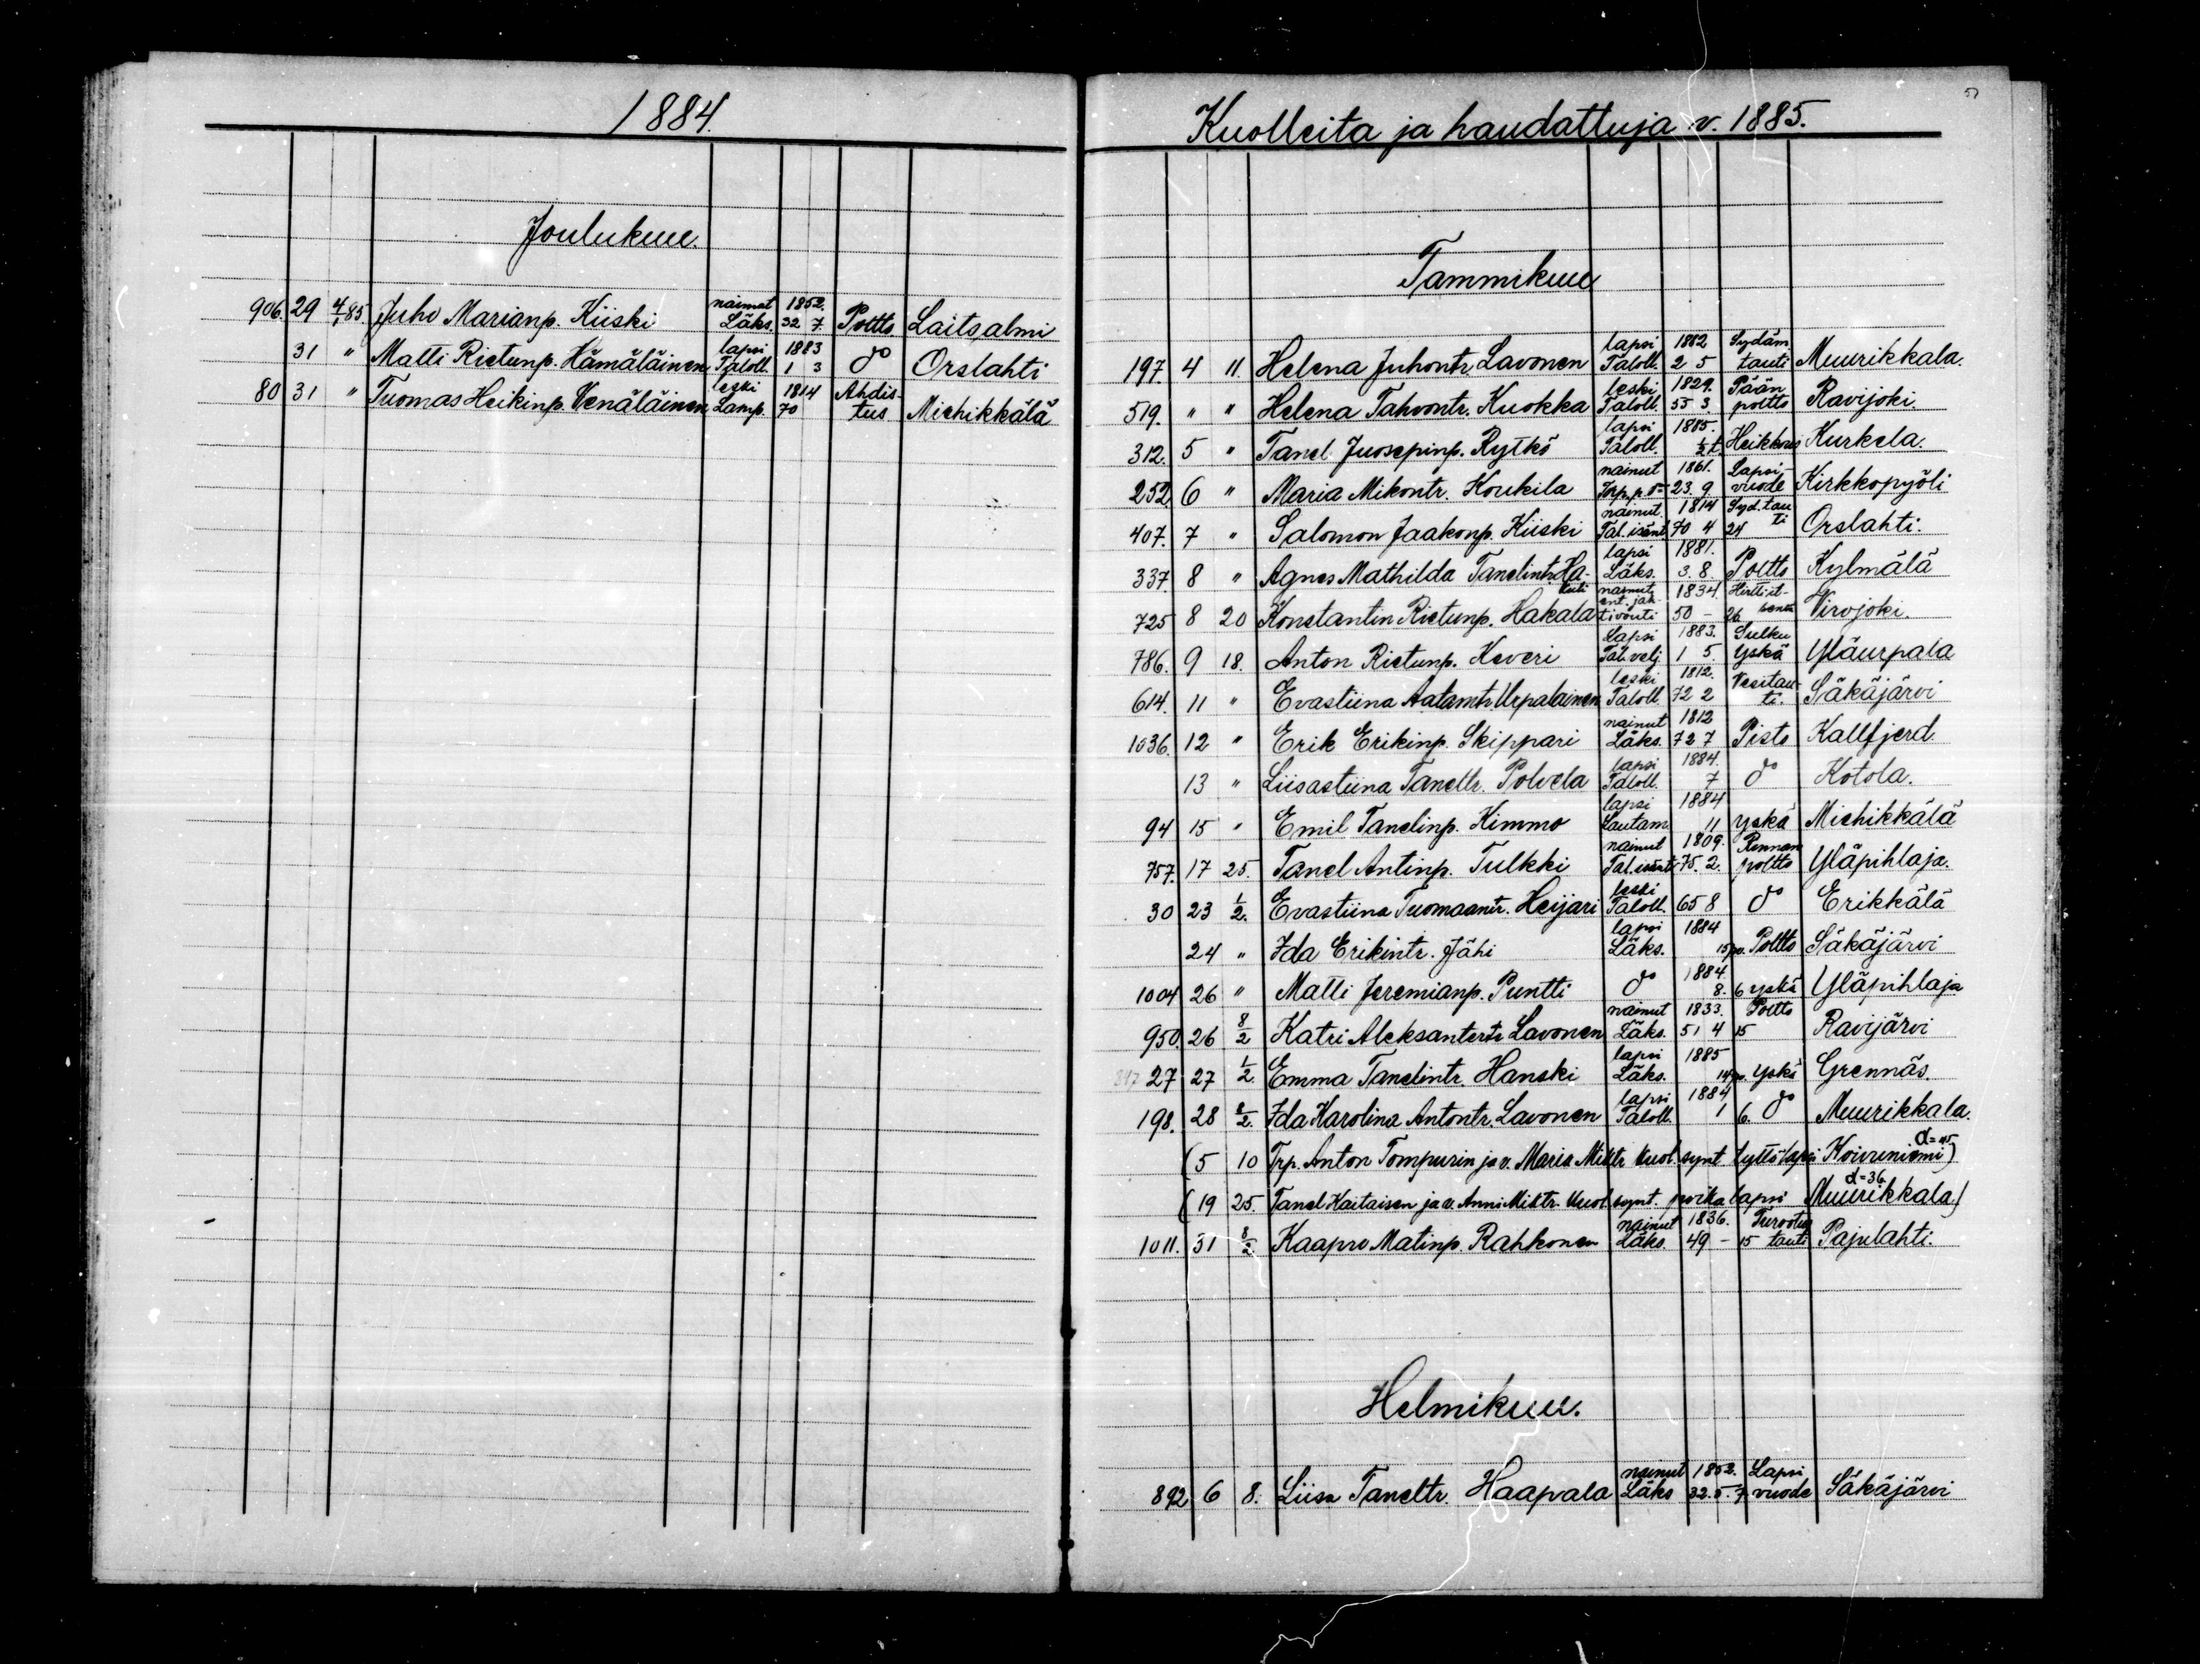 1884.
Joulukuu.
906. 29 4/1 85. Juho Marianp. Kiiski nainut Läks. 1852. 32 7. Poltto Laitsalmi
31 " Matti Rietunp. Hämäläinen lapsi Taloll. 1883 1 3 do Orslahti
80 31 " Tuomas Heikinp. Venäläinen leski Lamp. 1814 70 Ahdistus Miehikkälä
Kuolleita ja haudattuja v. 1885.
Tammikuu
197. 4 11. Helena Juhontr. Lavonen lapsi Taloll. 1882 2 5 Sydäm tauti Muurikkala.
519. " " Helena Tahvontr. Kuokka leski Taloll. 1829. 55 3. Pään poltto Ravijoki.
312. 5 " Tanel Juosepinp. Rytkö lapsi Taloll. 1885. 1/2 t. Heikkous Kurkela.
252. 6 " Maria Mikontr. Koukila nainut 1861. 23. 9 Lapsivuode Kirkkopyöli
407. 7 " Salomon Jaakonp. Kiiski nainut. Tal. isänt 1814 70 4 24 Syd. tauti Orslahti.
337. 8 " Agnes Mathilda Tanelintr. Ha- lapsi Läks. 1881. 3. 8. Poltto Kylmälä
725 8 20 Konstantin Rietunp. Hakala nainut ent. jahtivouti 1834. 50 - 26 Virojoki.
786. 9 18. Anton Rietunp. Keveri lapsi Tal. velj. 1883. 1 5 Sulku yskä Yläurpala
614. 11 " Evastiina Aatamtr. Urpalainen leski Taloll. 1812. 72 2 Vesitauti. Säkäjärvi
1036. 12 " Erik Erikinp. Skippari nainut Läks. 1812 72 7 Pisto Kallfjerd
13 " Liisastiina Taneltr. Polvela lapsi Taloll. 1884. 7 do Kotola.
94 15 " Emil Tanelinp. Kimmo lapsi Lautam. 1884 11 yskä Miehikkälä
757. 17 25. Tanel Antinp. Tulkki nainut Tal. isänt 1809. 75. 2. Rinnan poltto Yläpihlaja.
30 23 1/2. Evastiina Tuomaantr. Heijari leski Taloll. 65 8 do Erikkälä
24 " Ida Erikintr. Jähi lapsi Läks. 1884 15 pv. Poltto Säkäjärvi
1004 26 " Matti Jeremianp. Puntti do 1884. 8. 6 yskä Yläpihlaja
950. 26 8/2 Katri Aleksantertr. Lavonen nainut Läks. 1833. 51 4 15 Poltto Ravijärvi
347 27 27 1/2. Emma Tanelintr. Hanski lapsi Läks. 1885 14 pv. yskä Grennäs.
198. 28 8/2. Ida Karolina Antontr. Lavonen lapsi Taloll. 1884 1 6. do Muurikkala.
(5 10 Trp. Anton Tompurin ja v. Maria Miktr. kuol. synt. tyttö lapsi Koivuniemi) d=45
(19 25. Tanel Kaitaisen ja v. Anni Miktr. kuol. synt. poika lapsi Muurikkala) d=36
1011. 31 8/2. Kaapro Matinp. Rahkonen nainut Läks 1836. 49 - 15 Turvotus tauti Pajulahti.
Helmikuu.
892 6 8. Liisa Taneltr. Haapala nainut Läks 1852. 32. 5. 7 Lapsi vuode Säkäjärvi